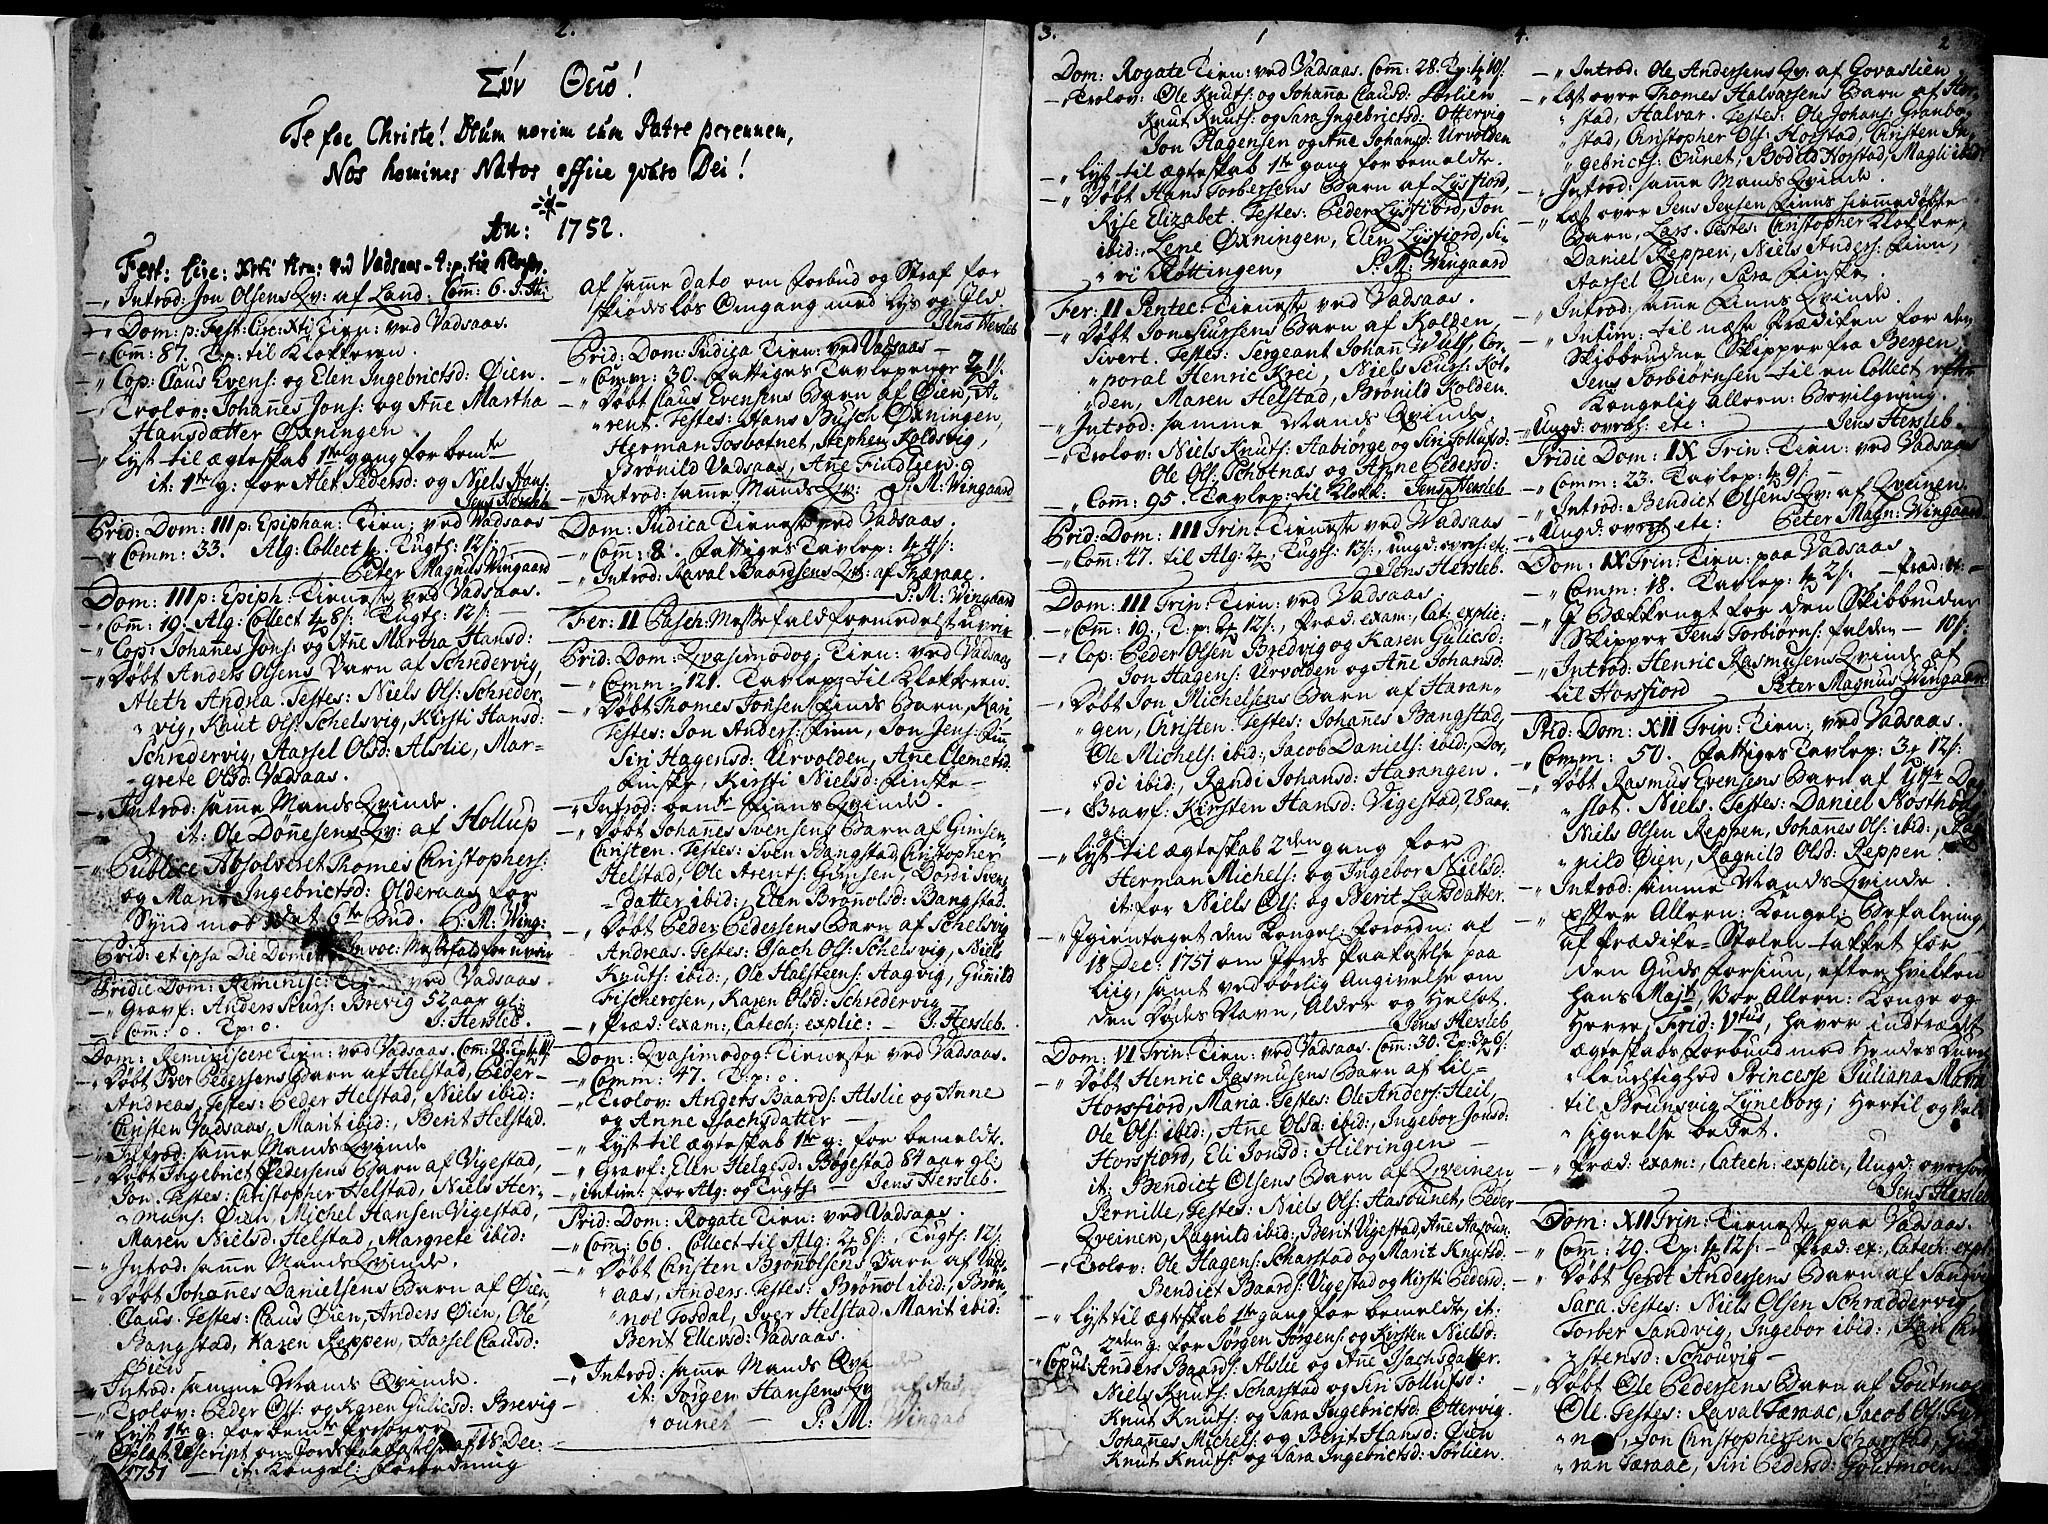 1.
2.
Σύν Θεῷ!
Te fac Christe! Deum norim cum Patre perennem,
Nos homines Natos effice qvæso Dei!
An: 1752.
Fest: Circ: Xsti Tien: ved Vadsaas
-„ Introd: Jon Olsens Qv: af Land. Comm: 6.
-„ Dom: p: Fest: Circ: Xti Tien: ved Vadsaas.
-„ Com: 87. T:p: til Klokkeren.
-„ Cop: Claus Evens: og Elen Ingebrictsd: Øien.
-„ Trolov: Johannes Jons: og Añe Martha
Hansdatter Øxningen
-„ Lyst til ægteskab 1ste gang for bemte
it: 1ste g: for Alet Pedersd: og Niels Hans:
Jens Hersleb
Prid: Dom: III p: Epiphan: Tien: ved Vadsaas
-„ Comm: 33. Alg: Collect Tugts: 12 s:
Peter Magnus Wingaard
Dom: III p: Epiph: Tieneste ved Vadsaas.
-„ Com: 19. Alg: Collect 8 s: Tugts: 12 s:
-„ Cop: Johañes Jons: og Añe Martha Hansd:
-„ Døbt Anders Olsens Barn af Schredervig,
Aleth Andrea. Testes: Niels Ols: Schreder
vig, Knut Ols: Schelsvig, Kirsti Hansd:
Schredervig, Aarsel Olsd: Alslie, Mar-
grete Olsd: Vadsaas.
-„ Introd: samme Mands Qvinde.
it: Ole Dønesens Qv: af Hollup
-„ Publice Absolveret Thomes Christophers:
og Ingebrictsd: Olderaas for
Synd mod det 6te Bud. P: M: Wing:
Prid: et ipsa Die Domin: Invoc: Messefald for uveir
Pridie Dom: Reminisc: Tien: ved Vadsaas
-„ Gravf: Anders Siurs: Brevig 52 aar gl:
-„ Com: 0. T:p: 0. J: Hersleb.
Dom: Reminiscere Tien: ved Vadsaas. Com: 28.
-„ Døbt Iver Pedersens Barn af Helstad, Peder
Andreas, Testes: Peder Helstad, Niels ibid:
Christen Vadsaas, Marit ibid:, Berit Helstad.
-„ Introd: samme Mands Qvinde
-„ Døbt Ingebrict Pedersens Barn af Vigestad,
Jon. Testes: Christopher Helstad, Niels Her-
mans: Øien, Michel Hansen Vigestad,
Maren Nielsd: Helstad, Margrete ibid:
-„ Introd: samme Mands Qvinde.
-„ Døbt Johañes Danielsens Barn af Øien,
Claus. Testes: Claus Øien, Anders Øien, Ole
Bangstad, Karen Reppen, Tarsel Clausd:
Øien
-„ Introd: samme Mands Qvinde.
-„ Trolov: Peder Ols: og Karen Gulicsd: Brevig
-„ Lyst 1ste g: for bemte Personer
Oplæst Rescript om Jords paakastelse af 18 Dec:
1751 — it: Kongel: Forordning
af samme dato om Forbud og Straf for
skiødesløs Omgang med Lys og Ild
Jens Hersleb
Prid: Dom: Judica Tien: ved Vadsaas —
-„ Comm: 30. Fattiges Tavlepenger
-„ Døbt Claus Evensens Barn af Øien, A-
rent. Testes: Hans Busch Øxningen,
Herman Fosbotnet, Stephen Koldsvig,
Brønild Vadsaas, Añe Findlien
-„ Introd: samme Mands Qv: P: M: Wingaard
Dom: Judica Tieneste ved Vadsaas.
-„ Com: 8. Fattiges Tavlep: 4 s:
-„ Introd: Raval Baardsens Qv: af Tæraac.
P: M: Wingaard
Fer: II Pasch: Messefald formedelst uveir
Prid: Dom: Qvasimodog: Tien: ved Vadsaas
-„ Comm: 121. Tavlep: til Klokkeren.
-„ Døbt Thomes Jonsen Finds Barn, Kari,
Testes: Jon Anders: Finn, Jon Jens: Fin,
Siri Hagensd: Urvolden, Añe Clemetsd:
Finske, Kirsti Nielsd: Finske —
-„ Introd: bemte Finns Qvinde.
-„ Døbt Johañes Svensens Barn af Gimsen,
Christen. Testes: Sven Bangstad, Christopher
Helstad, Ole Arents: Gimsen, Dordi Svens
datter ibid:, Elen Brønolsd: Bangstad.
-„ Døbt Peder Pedersens Barn af Schelsvig
Andreas. Testes: Isach Ols: Schelsvig, Niels
Knuts: ibid:, Ole Halsteens: Aagvig, Guñild
Fischerosen, Karen Olsd: Schredervig
-„ Præd: exam:, Catech: explic: — J: Hersleb.
Dom: Qvasimodog: Tieneste ved Vadsaas.
-„ Comm: 47. T:p: 0.
-„ Trolov: Anders Baards: Alslie og Anne
og Anne Isachsdatter —
-„ Lyst til ægteskab 1ste g: for bemeldte.
-„ Gravf: Elen Helgesd: Bøgestad 84 aar gl:
-„ intim: for Alg: og Tugts: — Jens Hersleb.
Prid: Dom: Rogate Tien: ved Vadsaas.
-„ Com: 66. Collect til Alg: 8 s:, Tugts: 12 s:
-„ Døbt Christen Brønolsens Barn af Vads-
aas, Anders. Testes: Brønnol ibid:, Brøn-
nol Fosdal, Iver Helstad. Marit ibid:
Berit Ellevsd: Vadsaas.
-„ Introd: samme Mands Qvinde
it: Jørgen Hansens Qv: af Aas-
ounet — P: M: Wingab
3.
1
Dom: Rogate Tien: ved Vadsaas. Com: 28. T:p: 10 s:
-„ Trolov: Ole Knuts: og Johaña Clausd: Sørlien
Knut Knuts: og Sara Ingebrictsd: Ottervig
Jon Hagensen og Añe Johansd: Urvolden
-„ Lyst til ægteskab 1ste gang for bemeldte.
-„ Døbt Hans Torbersens Barn af Lysfiord,
Rise Elizabet. Testes: Peder Lysfiord, Jon
ibid:, Lene Øxningen, Elen Lysfiord, Si-
ri Røttingen, P: M: Wingaard
Fer: II Pentec: Tieneste ved Vadsaas.
-„ Døbt Jon Siursens Barn af Kolden,
Sivert. Testes: Sergeant Johañ Wulf Cor-
poral Henric Krei, Niels Siurs: Kol-
den, Maren Helstad, Brønild Kolden.
-„ Introd: samme Mands Qvinde.
-„ Trolov: Niels Knuts: Aabiørge og Siri Tollufsd:
Ole Ols: Schotnæs og Anne Pedersd:
-„ Com: 95. Tavlep: til Klokk: Jens Hersleb
Prid: Dom: III Trin: Tieneste ved Vadsaas
-„ Com: 47. til Alg: 2 , Tugts: 13 s:, Ungd: overh: etc
Jens Hersleb.
Dom: III Trin: Tien: ved Vadsaas.
-„ Com: 19:, T:p: 12 s:, Præd: exam: Cat: explic:
-„ Cop: Peder Olsen Bredvig og Karen Gulicsd:
Jon Hagens: Urvolden og Añe Johansd:
-„ Døbt Jon Michelsens Barn af Haran-
gen, Christen. Testes: Johañes Bangstad,
Ole Michels: ibid:, Jacob Daniels: ibid:, Dor-
di ibid:, Randi Johansd: Harangen.
-„ Gravf: Kirsten Hansd: Vigestad, 28 aar
gl:
-„ Lyst til ægteskab 2den gang for
Herman Michels: og Ingebor Nielsd:
it: for Niels Ols: og Berit Larsdatter.
-„ Igientaget den Kongel: Forordn: af
18 Dec: 1751 om Jords Paakastelse paa
Liig, samt ved børlig Angivelse om
den Dødes Navn, Alder og Helsot.
Jens Hersleb
Dom: VI Trin: Tien: ved Vadsaas. Com: 30. T:p: 9 s:
-„ Døbt Henric Rasmusens Barn af Lil-
Horsfiord, Maria. Testes: Ole Anders: Heil,
Ole Ols: ibid:, Añe Olsd: ibid:, Ingebor Jonsd:
Horsfiord, Eli Jonsd: Hilringen —
it: Bendict Olsens Barn af Qveinen,
Pernille, Testes: Niels Ols: Aasounet, Peder
Qveinen, Ragnild ibid:, Berit Vigestad, Añe Aasoun:
-„ Trolov: Ole Hagens: Scharstad og Marit Knutsd:
Bendict Baards: Vigestad og Kirsti Pedersd:
-„ Lyst til ægteskab 1ste gang for bemeldte, it:
2den g: for Jørgen Jørgens: og Kirsten Nielsd:
-„ Copul: Anders Baards: Alslie og Añe Isachsdatter.
Niels Knuts: Scharstad og Siri Tollufsd:
Knut Knuts: og Sara Ingebrictsd: Ottervig.
Johañes Michels: og Berit Hansd: Øien
Knut Knuts: og Sara Ingebrictsd: Sørlien.
4.
2
-„ Introd: Ole Andersens Qv: af Govaslien
-„ Læst over Thomes Halvarsens Barn af Hor-
stad, Halvar. Testes: Ole Johans: Granbo-
stad, Christopher Ols: Horstad, Christen In-
gebricts: Ounet, Bodild Horstad, Magli ibid:
-„ Introd: samme Mands Qvinde.
-„ Læst over Jens Jensen Finns hiemmedøbte
Barn, Lars. Testes: Christopher Klokker,
Daniel Reppen, Niels Anders: Finn,
Aarsel Øien, Sara Finske.
-„ Introd: samme Finns Qvinde.
-„ Intim: til næste Prædiken for den
Skibbrudne Skipper fra Bergen
Jens Torbiørnsen til en Collect efter
Kongelig Allern: Bevilgning.
-„ Ungd: overh: etc: Jens Hersleb.
Pridie Dom: IX Trin: Tien: ved Vadsaas
-„ Comm: 23. Tavlep: 9 s: —
-„ Introd: Bendict Olsens Qv: af Qveinen.
-„ Ungd: overh: etc: Peter Magn: Wingaard
Dom: IX Trin: Tien: paa Vadsaas
-„ Comm: 18. Tavlep: 2 s.
-„ I Bækkenet for den Skibbrudne
Skipper Jens Torbiørns: falden — 10 s:
-„ Introd: Henric Rasmusens Qvinde af
Lil Horsfiord Peter Magnus Wingaard
Prid: Dom: XII Trin: Tien: ved Vadsaas.
-„ Comm: 50. Fattiges Tavlep: 3 12 s:
-„ Døbt Rasmus Evensens Barn af
slot. Niels. Testes: Daniel
Niels Olsen Reppen, Johañes Ols: ibid:,
nild Øien, Ragnild Olsd: Reppen.
-„ Introd: samme Mands Qvinde.
-„ Efter Allern: Kongel: Befalning,
af Prædike-Stolen takket for
den Guds Forsiun, efter hvilken
Hans Majt, Vor Allern: Konge og
Herre, Frid: Vtus, haver indtrædt
ægteskabs Forbund med Hendes Dur
leuchtighed Princesse Juliana Maria
til Brunsvig Lyneborg; Hertil og Vel
signelse bedet.
-„ Præd: exam:, Catech: explic:, Ungd: overhørt
Jens Hersleb
Dom: XII Trin: Tieneste paa Vadsaas.
-„ Com: 29. T:p: 12 s: — Præd: ex:, Catech: expl:
-„ Døbt Gerdt Andersens Barn af Sandvig
Sara. Testes: Niels Olsen Schræddervig,
Torber Sandvig, Ingebor ibid:, Kari Chri
stensd: Schouvig —
-„ Døbt Ole Pedersens Barn af Goutmoen
Ole. Testes: Raval Tæraac, Jacob Ols:
Jon Christophersen Scharstad,
ran Tæraac, Siri Pedersd: Goutmoen